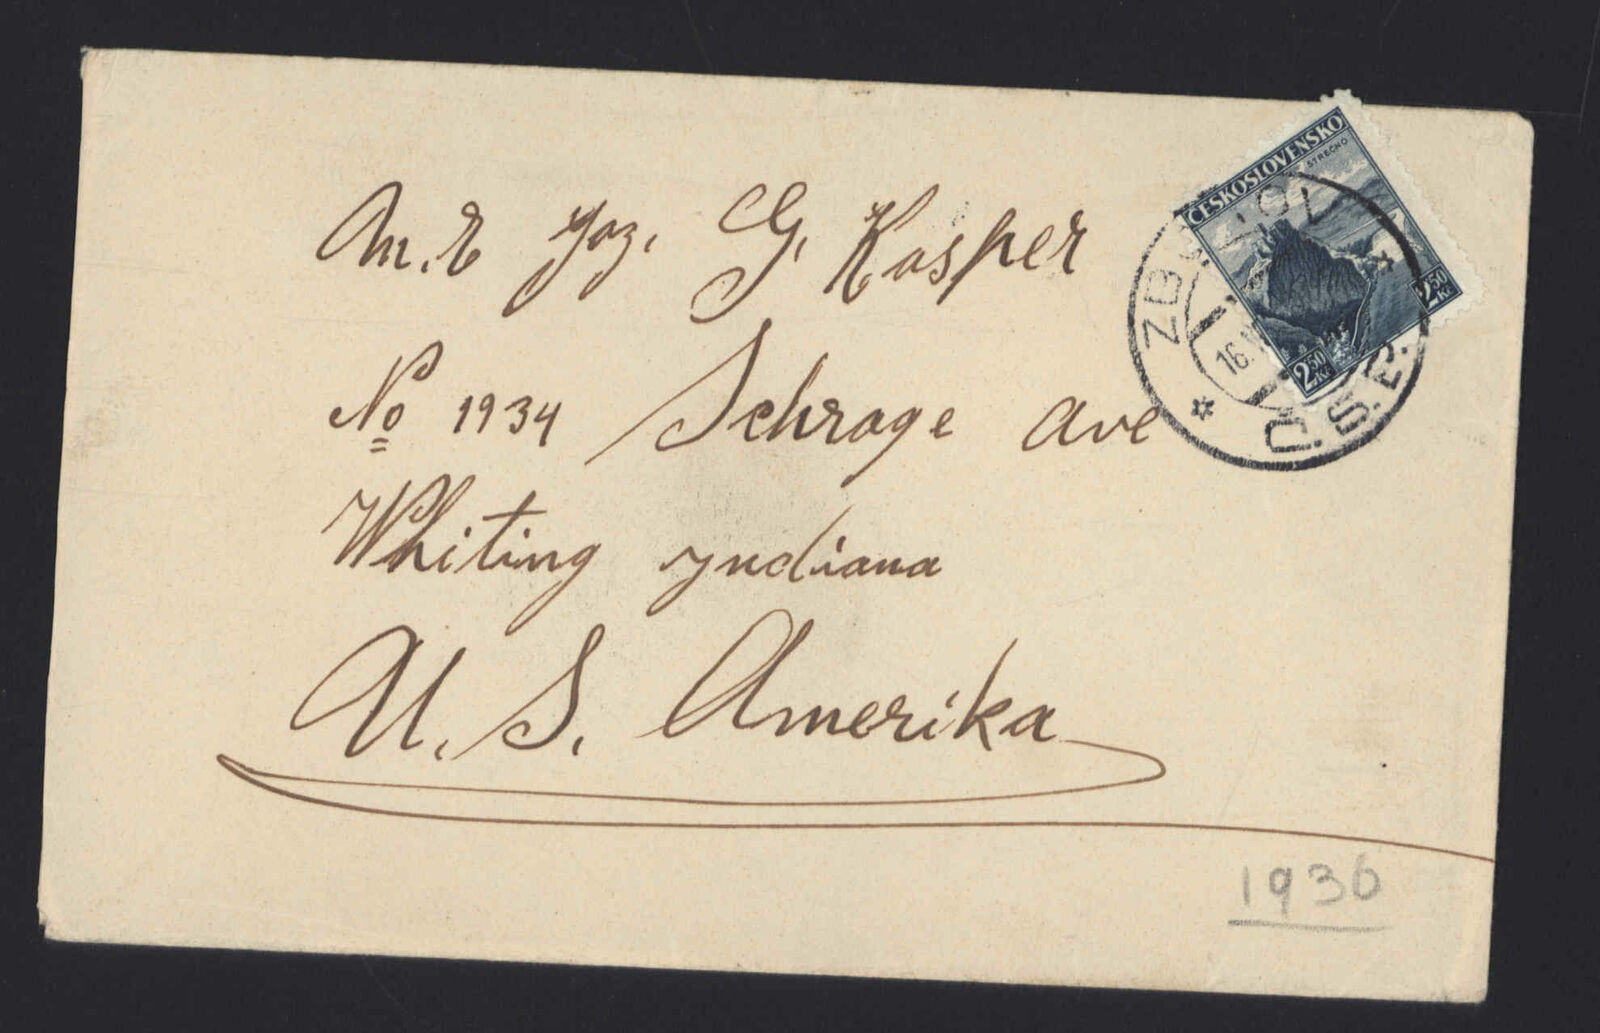 M.r Joz. G. Kasper
No 1934 Schrage Ave
Whiting yndiana
U. S. Amerika
1936
ČESKOSLOVENSKO
STREČNO
2 50 Kč
2 50 Kč
16.